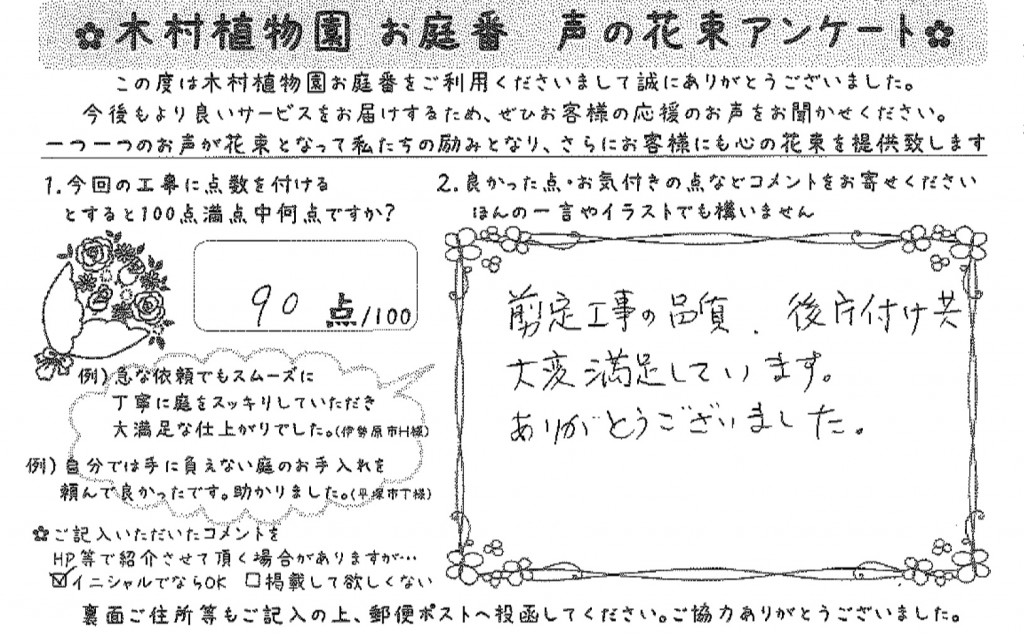 ✿木村植物園 お庭番 声の花束アンケート✿
この度は木村植物園お庭番をご利用くださいまして誠にありがとうございました。
今後もより良いサービスをお届けするため、ぜひお客様の応援のお声をお聞かせください。
一つ一つのお声が花束となって私たちの励みとなり、さらにお客様にも心の花束を提供致します
1.今回の工事に点数を付ける
とすると100点満点中何点ですか?
90 点/100
例)急な依頼でもスムーズに
丁寧に庭をスッキリしていただき
大満足な仕上がりでした。(伊勢原市H様)
例)自分では手に負えない庭のお手入れを
頼んで良かったです。助かりました。(平塚市T様)
✿ご記入いただいたコメントを
HP等で紹介させて頂く場合がありますが…
☑イニシャルでならOK □掲載して欲しくない
2.良かった点・お気付きの点などコメントをお寄せください
ほんの一言やイラストでも構いません
剪定工事の品質、後庁付け共
大変満足しています。
ありがとうございました。
裏面ご住所等もご記入の上、郵便ポストへ投函してください。ご協力ありがとうございました。